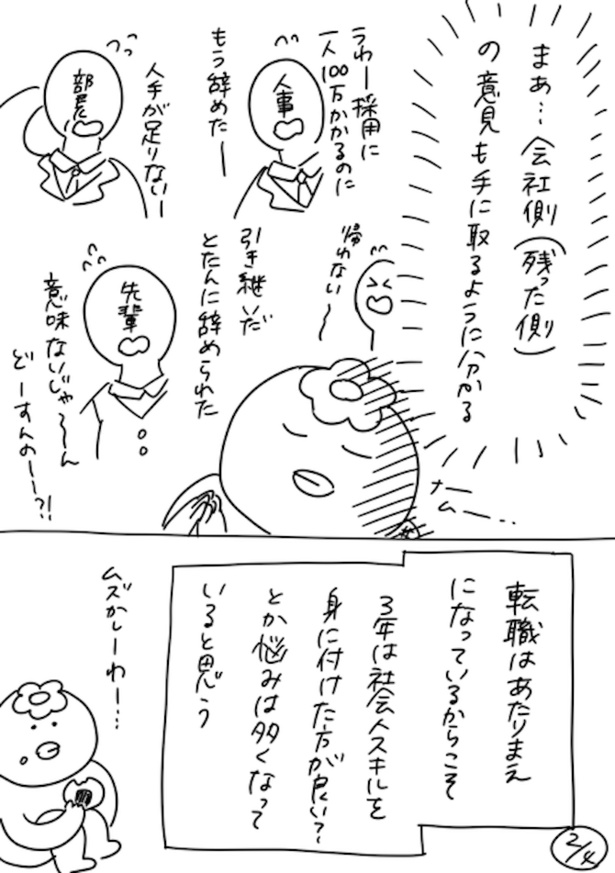 まあ…会社側(残った側)
の意見も手に取るように分かる
うわー採用に
一人100万かかるのに
もう辞めたー
人事
人手が足りないー
部長
帰れない〜
引き継いだ
とたんに辞められた
先輩
意味ないじゃ〜ん
どーすんのー?!
ナー
ムー…
転職はあたりまえ
になっているからこそ
3年は社会人スキルを
身に付けた方が良い?
とか悩みは多くなって
いると思う
ムズかしーわー…
2/4